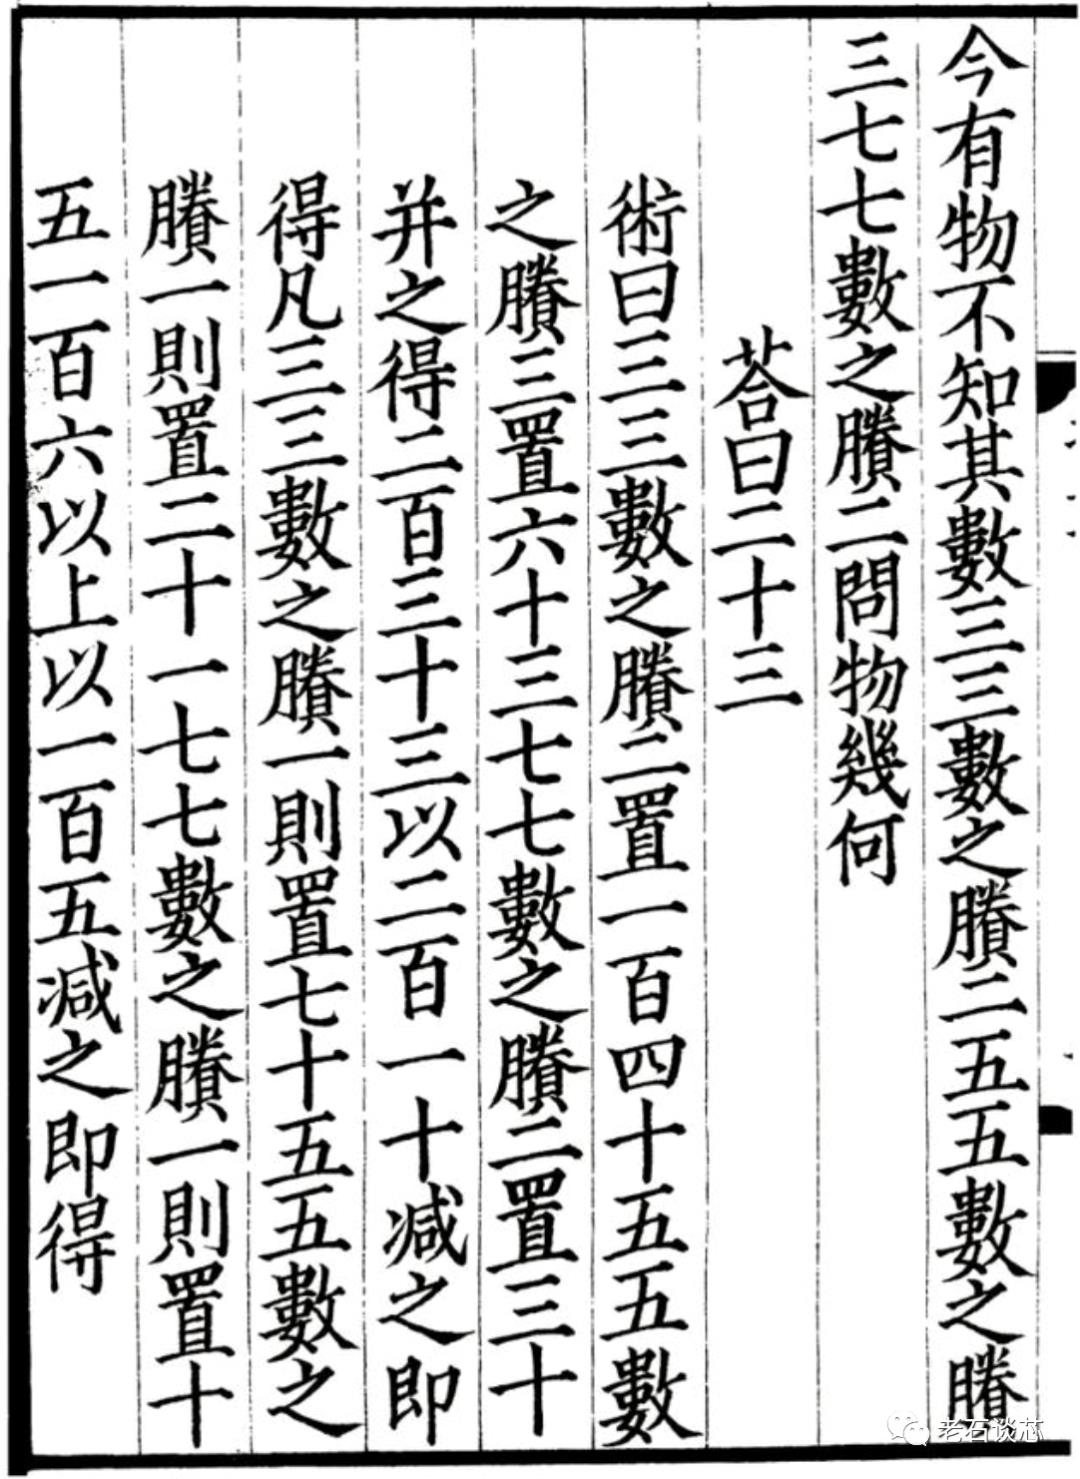 今有物不知其數三三數之賸二五五數之賸
三七七數之賸二問物幾何
荅曰二十三
術曰三三數之賸二置一百四十五五數
之賸三置六十三七七數之賸二置三十
并之得二百三十三以二百一十減之即
得凡三三數之賸一則置七十五五數之
賸一則置二十一七七數之賸一則置十
五一百六以上以一百五減之即得
老石谈芯